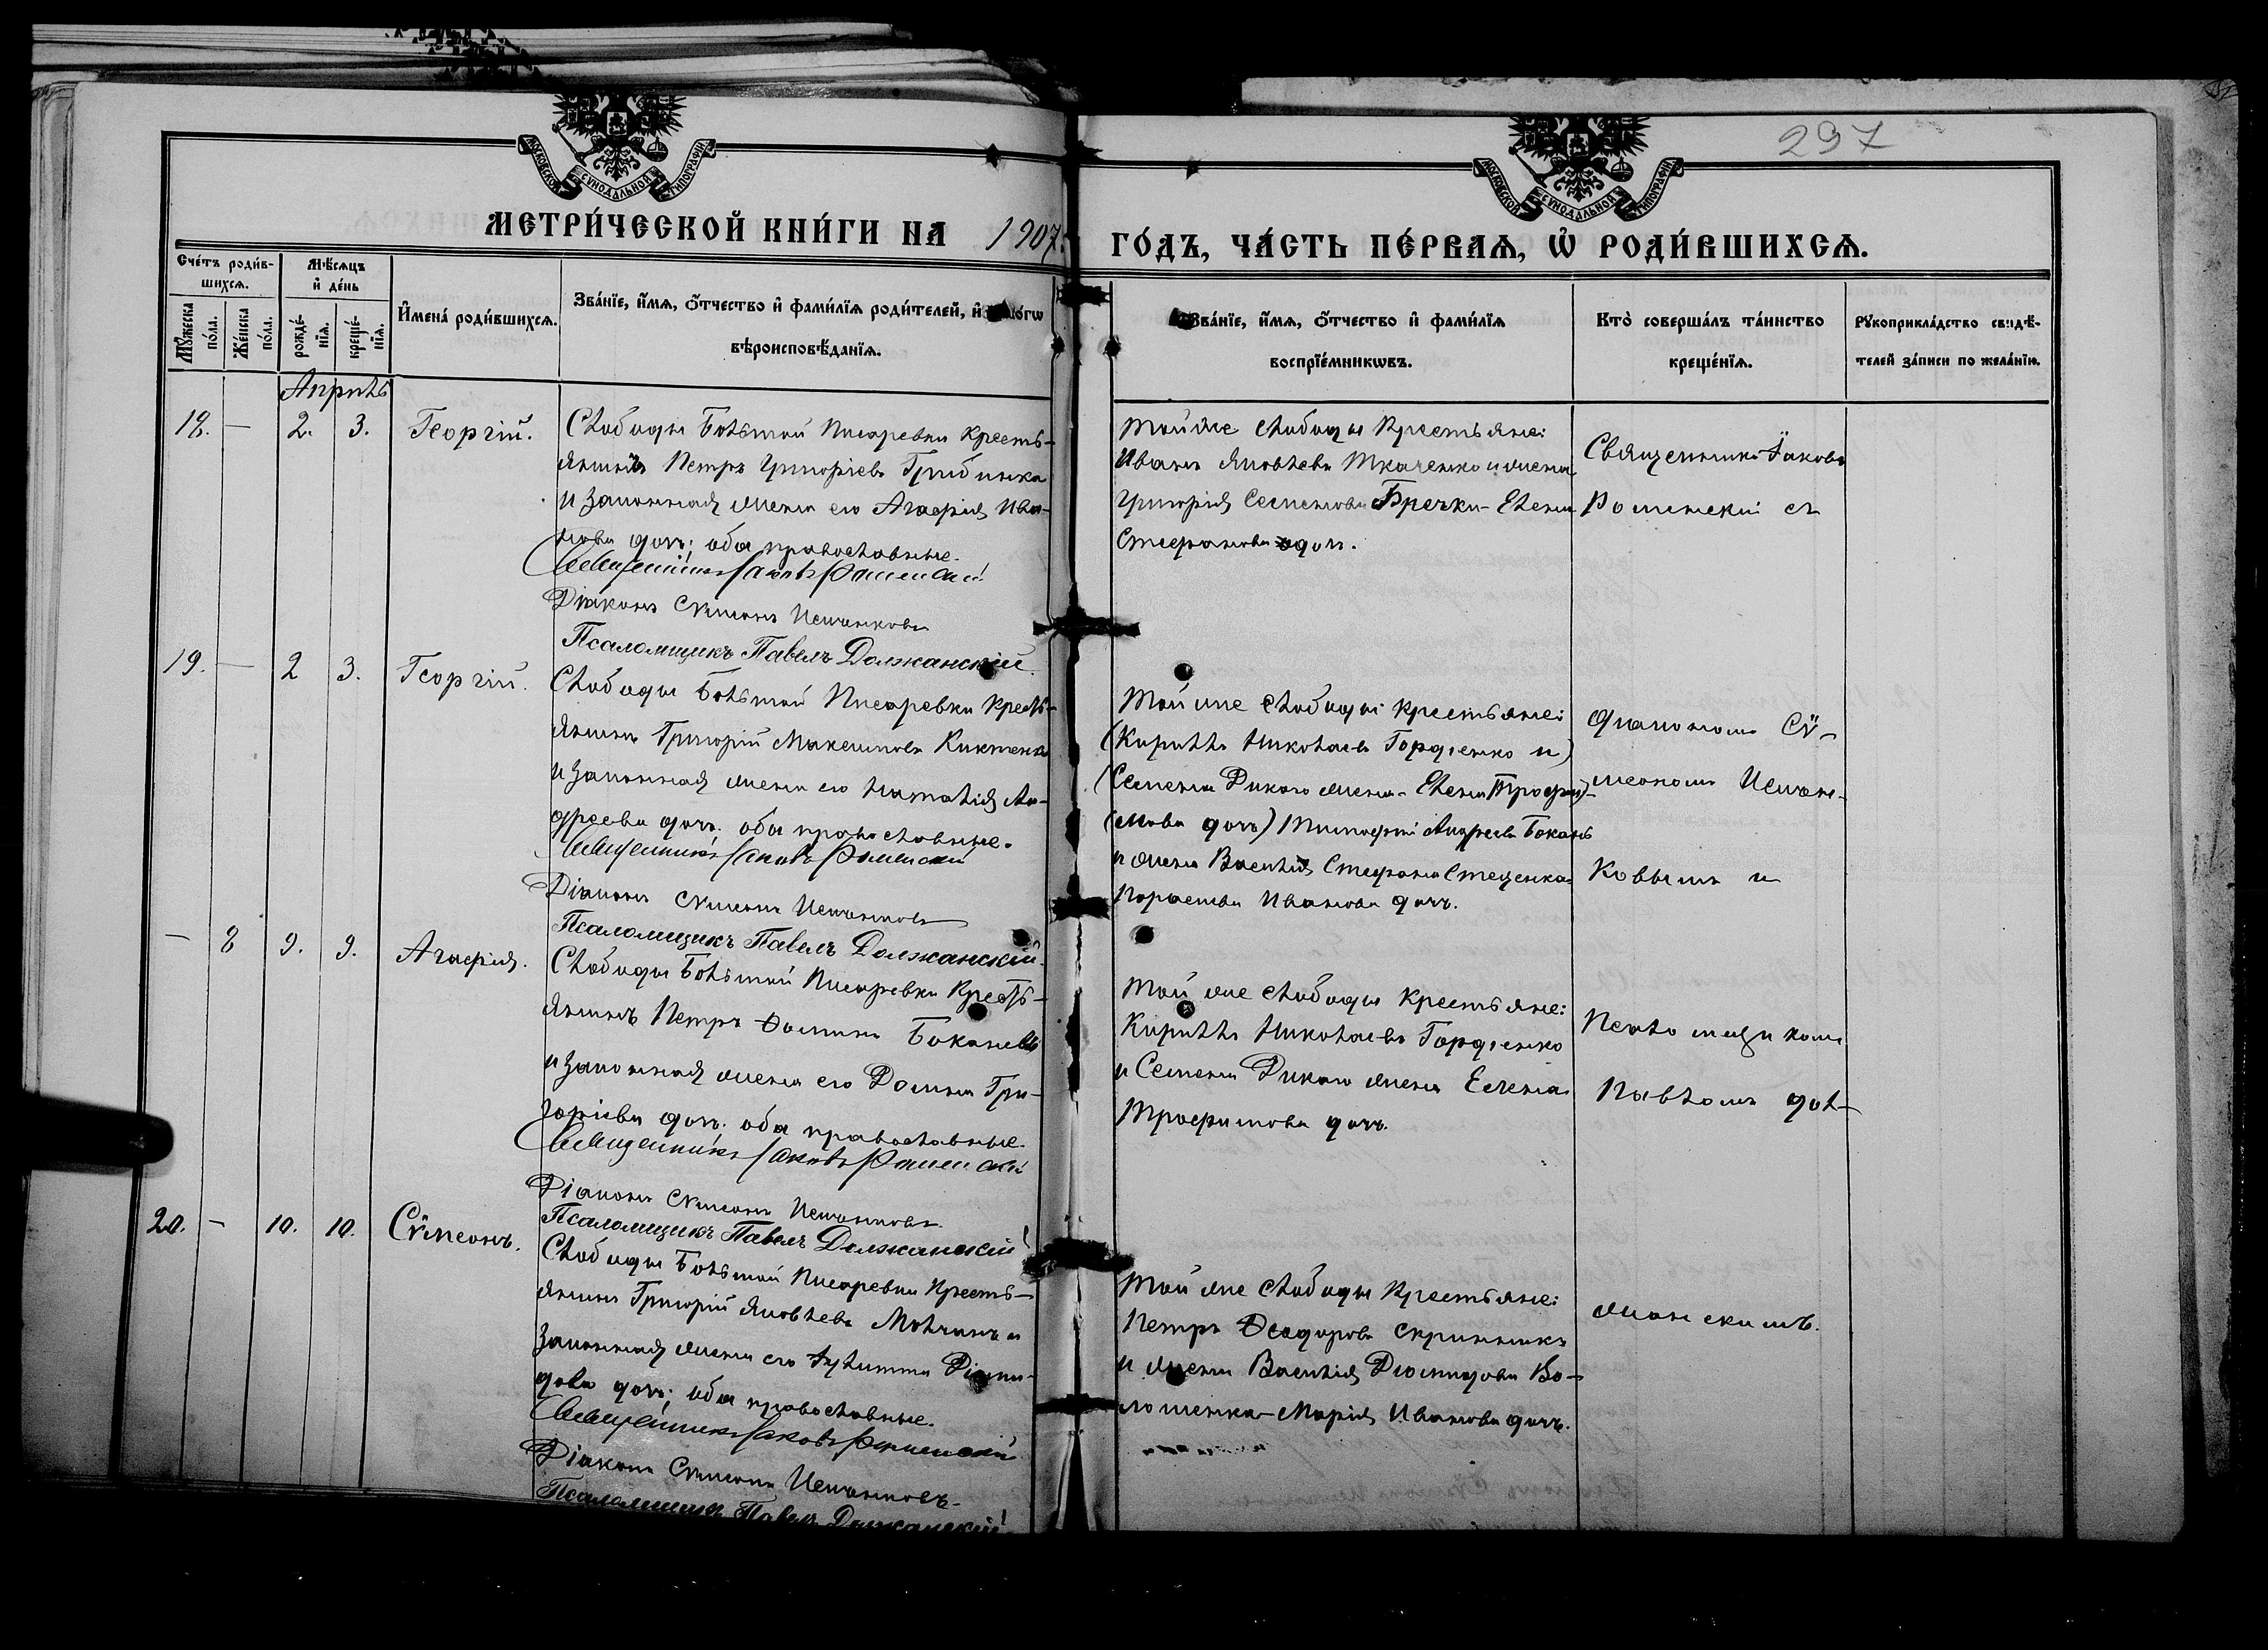 297
МОСКОВСКОЙ СѴНОДАЛЬНОЙ ТИПОГРАФІИ
МОСКОВСКОЙ СѴНОДАЛЬНОЙ ТИПОГРАФІИ
МЕТРИ́ЧЕСКОЙ КНИ́ГИ НА 1907
ГО́ДЪ, ЧА́СТЬ ПЕ́РВАѦ, Ѡ҆ РОДИ́ВШИХСѦ.
Сче́тъ роди́в-
шихсѧ.
Мѣ́сѧцъ
и҆ де́нь
Мꙋ́жеска по́ла.
Же́нска по́ла.
рожде́-
нїѧ.
креще́-
нїѧ.
И҆мена̀ роди́вшихсѧ.
Зва́нїе, и҆́мѧ, ѻ҆́тчество и҆ фами́лїѧ роди́телей, и҆
вѣроисповѣ́данїѧ.
Зва́нїе, и҆́мѧ, ѻ҆́тчество и҆ фами́лїѧ
воспрїе́мникѡвъ.
Кто̀ соверша́лъ та́инство
креще́нїѧ.
Рꙋкоприкла́дство свидѣ́-
телей за́писи по жела́нїю.
Апрѣль
18. — 2. 3. Георгій.
Слободы Большой Писаревки кресть-
янинъ Петръ Григоріевъ Грибинка
и законная жена его Агафія Ива-
нова дочь; оба православные.
Священникъ Іаковъ Роменскій
Діаконъ Сѵмеонъ Исичиковъ
Псаломщикъ Павелъ Должанскій
Той же слободы крестьяне:
Иванъ Яковлевъ Ткаченко и жена
Григорія Семенова Бречки - Елена
Стефанова дочь.
Священникъ Іаковъ
Роменскій съ
19. — 2 3. Георгій.
Слободы Большой Писаревки кресть-
янинъ Григорій Максимовъ Киктенко
и законная жена его Наталія Ан-
дреева дочь. оба православные.
Священникъ Іаковъ Роменскій
Діаконъ Сѵмеонъ
Псаломщикъ Павелъ Должанскій
Той же слободы крестьяне:
(Кириллъ Николаевъ Гордіенко и)
(Семена Дикого жена - Елена Трофи-)
(мова дочь) Тимофей Андреевъ Боканъ
и жена Василія Стефанова Стеценка
Параскева Иванова дочь.
діакономъ Сѵ-
меономъ
ковымъ и
— 8 9. 9. Агафія.
Слободы Большой Писаревки кресть-
янинъ Петръ Ѳоминъ Боканевъ
и законная жена его Домна Гри-
горіева дочь. оба православные.
Священникъ Іаковъ Роменскій
Діаконъ Сѵмеонъ
Псаломщикъ Павелъ Должанскій
Той же слободы крестьяне:
Кириллъ Николаевъ Гордіенко
и Семена Дикого жена Елена
Трофимова дочь.
Псаломщикомъ
Павломъ Дол-
20. — 10. 10. Сѵмеонъ.
Слободы Большой Писаревки кресть-
янинъ Григорій Яковлевъ Молчанъ и
законная жена его Іулитта
дова дочь; оба православные.
Священникъ Іаковъ Роменскій
Діаконъ Сѵмеонъ
Псаломщикъ Павелъ Должанскій
Той же слободы крестьяне:
Петръ Ѳеодоровъ Скринникъ
и жена Василія Діомидова Во-
лошенка - Марія Иванова дочь.
жанскимъ.